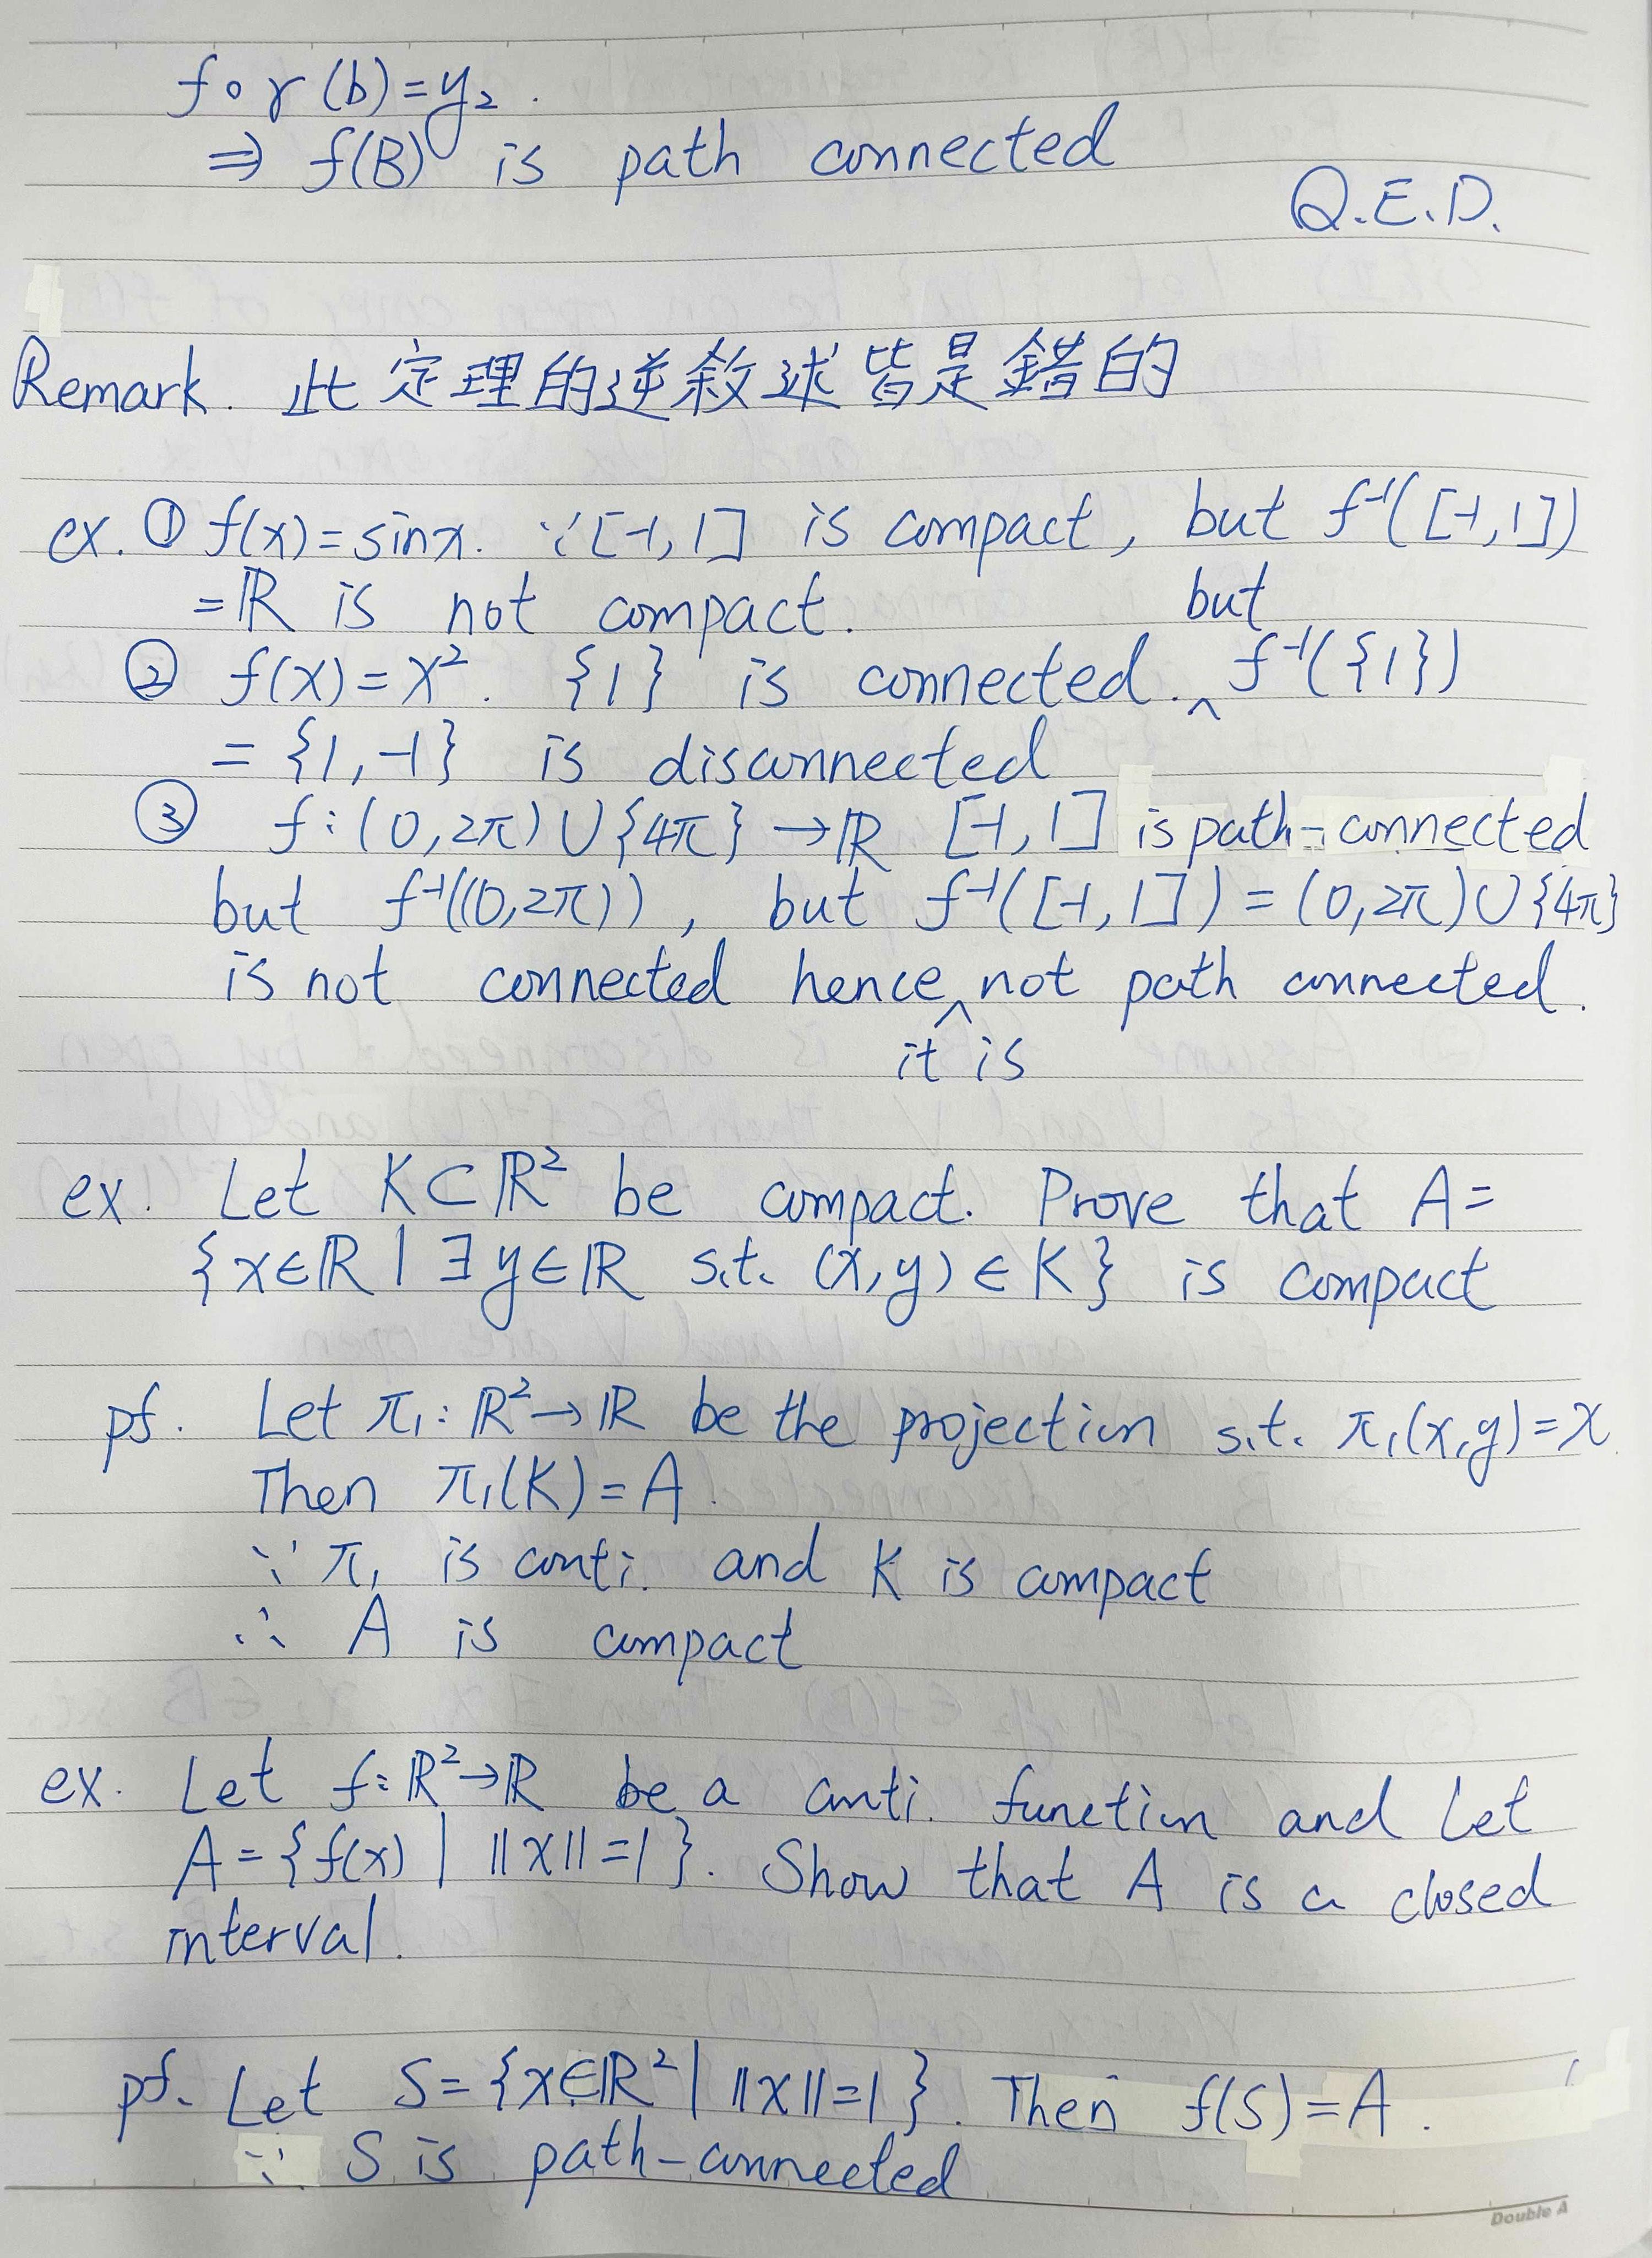 f∘γ(b)=y₂.
⇒ f(B) is path connected
Q.E.D.
Remark. 此定理的逆敘述皆是錯的
ex. ① f(x)=sinx. ∵[-1,1] is compact, but f⁻¹([-1,1])
=ℝ is not compact.
② f(x)=x². {1} is connected. but f⁻¹({1})
= {1,-1} is disconnected
③ f:(0,2π)∪{4π}→ℝ [-1,1] is path-connected
but f⁻¹((0,2π)), but f⁻¹([-1,1])=(0,2π)∪{4π}
is not connected hence it is not path connected.
ex. Let K⊂ℝ² be compact. Prove that A=
{x∈ℝ | ∃y∈ℝ s.t. (x,y)∈K} is compact
pf. Let π₁:ℝ²→ℝ be the projection s.t. π₁(x,y)=x.
Then π₁(K)=A.
∵ π₁ is conti. and K is compact
∴ A is compact
ex. Let f:ℝ²→ℝ be a conti. function and let
A={f(x) | ||x||=1}. Show that A is a closed
interval.
pf. Let S={x∈ℝ² | ||x||=1}. Then f(S)=A.
∵ S is path-connected
Double A